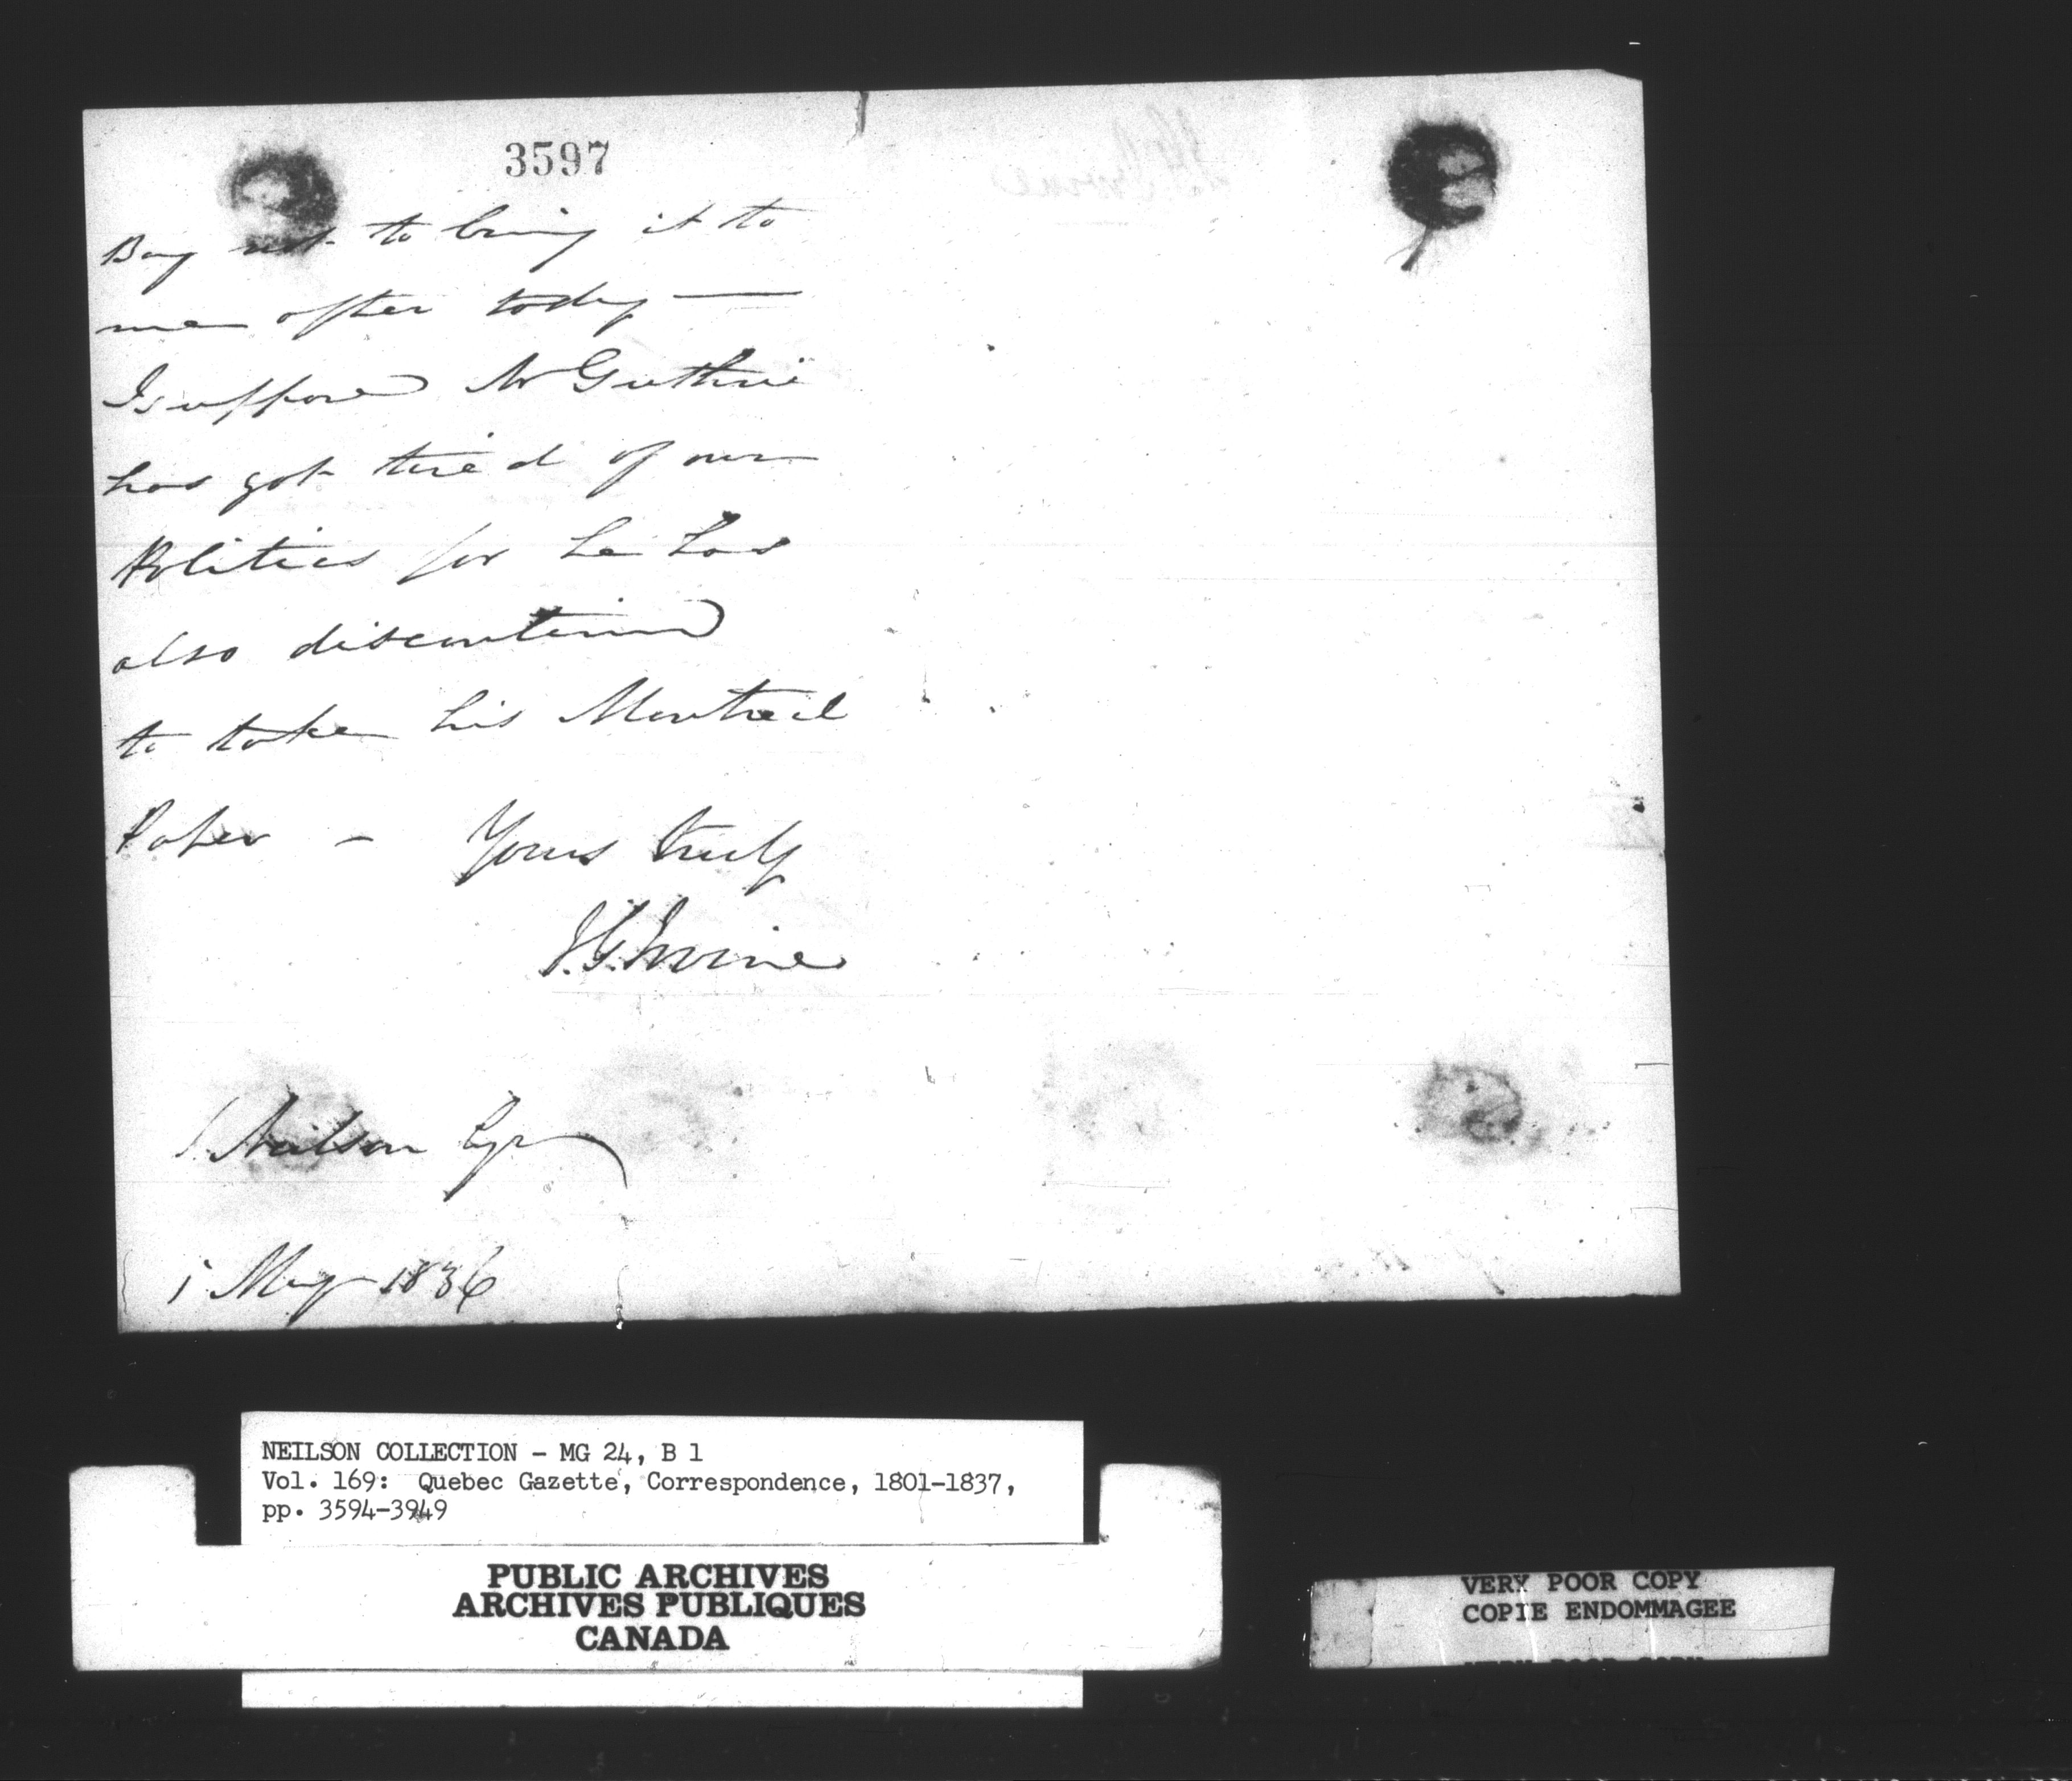 3597
Boy not to bring it to
me after today —
I suppose Mr Guthrie
has got tired of our
Politics for he has
also discontinued
to take his Montreal
Paper — Yours truly
J.G. Irvine
J. Neilson Esqr
1 May 1836
NEILSON COLLECTION - MG 24, B 1
Vol. 169: Quebec Gazette, Correspondence, 1801-1837,
pp. 3594-3949
PUBLIC ARCHIVES
ARCHIVES PUBLIQUES
CANADA
VERY POOR COPY
COPIE ENDOMMAGEE
VERY POOR COPY